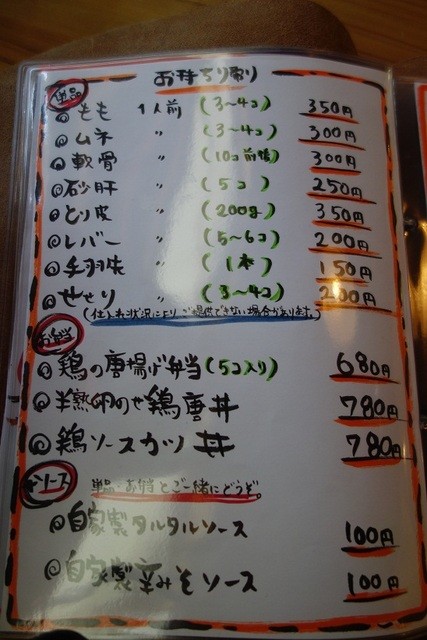 お持ち帰り
単品
もも 1人前 (3〜4コ) 350円
ムネ 〃 (3〜4コ) 300円
軟骨 〃 (10コ前後) 300円
砂肝 〃 (5コ) 250円
とり皮 〃 (200g) 350円
レバー 〃 (5〜6コ) 200円
手羽先 〃 (1本) 150円
せせり 〃 (3〜4コ) 200円
(仕入れ状況により、ご提供できない場合があります。)
お弁当
鶏の唐揚げ弁当(5コ入り) 680円
半熟卵のせ鶏唐丼 780円
鶏ソースカツ丼 780円
ソース
単品・お弁当とご一緒にどうぞ。
自家製タルタルソース 100円
自家製辛みそソース 100円